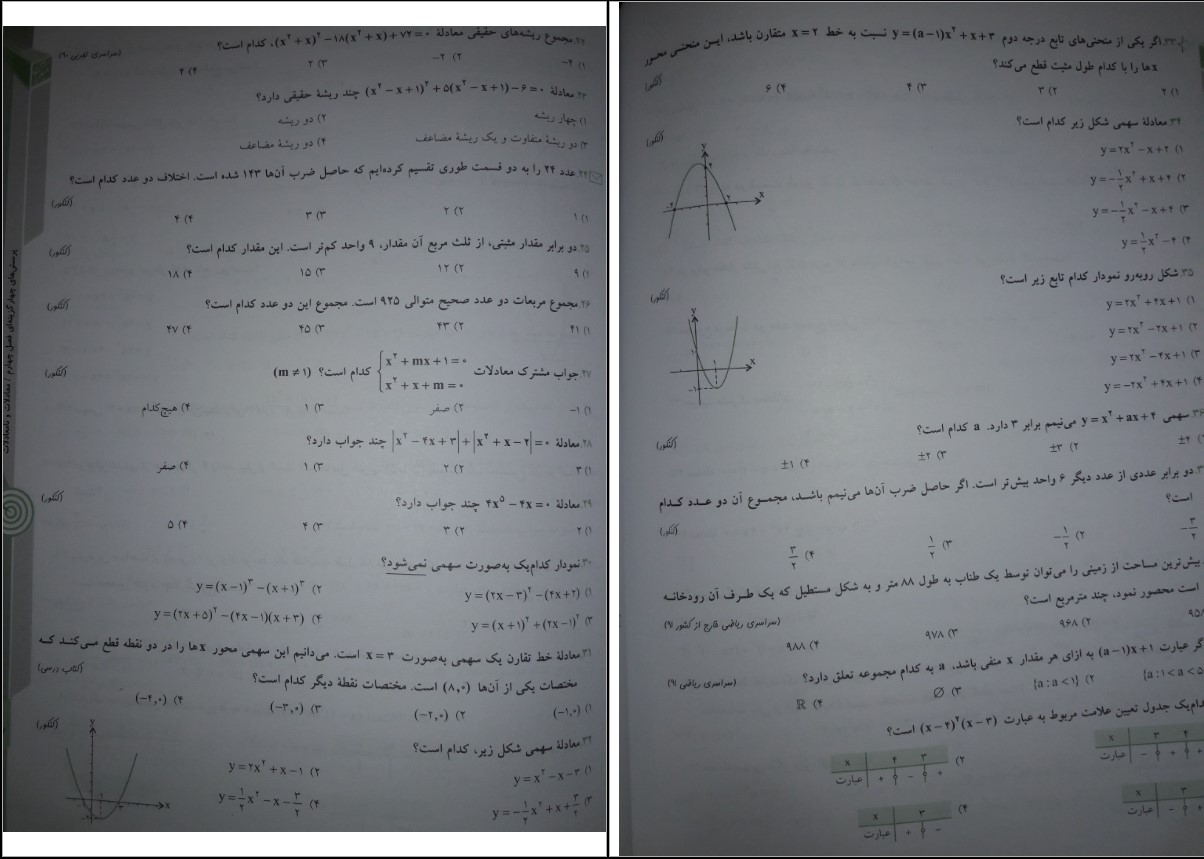 ۲۲.مجموع ریشه‌های حقیقی معادلهٔ (x۲ + x)۲ −۱۸(x۲ + x) + ۷۲ = ۰، کدام است؟
(سراسری تجربی ۹۰)
۱) ۴− ۲) ۲− ۳) ۲ ۴) ۴
۲۳.معادلهٔ (x۲ − x + ۱)۲ + ۵(x۲ − x + ۱) − ۶ = ۰ چند ریشهٔ حقیقی دارد؟
۱) چهار ریشه ۲) دو ریشه
۳) دو ریشهٔ متفاوت و یک ریشهٔ مضاعف ۴) دو ریشهٔ مضاعف
۲۴.عدد ۲۴ را به دو قسمت طوری تقسیم کرده‌ایم که حاصل ضرب آن‌ها ۱۴۳ شده است. اختلاف دو عدد کدام است؟
(کنکور)
۱) ۱ ۲) ۲ ۳) ۳ ۴) ۴
۲۵.دو برابر مقدار مثبتی، از ثلث مربع آن مقدار، ۹ واحد کم‌تر است. این مقدار کدام است؟
(کنکور)
۱) ۹ ۲) ۱۲ ۳) ۱۵ ۴) ۱۸
۲۶.مجموع مربعات دو عدد صحیح متوالی ۹۲۵ است. مجموع این دو عدد کدام است؟
(کنکور)
۱) ۴۱ ۲) ۴۳ ۳) ۴۵ ۴) ۴۷
۲۷.جواب مشترک معادلات { x۲ + mx + ۱ = ۰ کدام است؟ (m ≠ ۱)
x۲ + x + m = ۰
(کنکور)
۱) ۱− ۲) صفر ۳) ۱ ۴) هیچ‌کدام
۲۸.معادلهٔ |x۲ − ۴x + ۳| + |x۲ + x − ۲| = ۰ چند جواب دارد؟
۱) ۳ ۲) ۲ ۳) ۱ ۴) صفر
۲۹.معادلهٔ ۴x۵ − ۴x = ۰ چند جواب دارد؟
(کنکور)
۱) ۲ ۲) ۳ ۳) ۴ ۴) ۵
۳۰.نمودار کدام‌یک به‌صورت سهمی نمی‌شود؟
۱) y = (۲x − ۳)۲ − (۴x + ۲) ۲) y = (x − ۱)۳ − (x + ۱)۳
۳) y = (x + ۱)۲ + (۲x − ۱)۲ ۴) y = (۲x + ۵)۲ − (۴x − ۱)(x + ۳)
۳۱.معادلهٔ خط تقارن یک سهمی به‌صورت x = ۳ است. می‌دانیم این سهمی محور xها را در دو نقطه قطع می‌کند که
مختصات یکی از آن‌ها (۸,۰) است. مختصات نقطهٔ دیگر کدام است؟
(کتاب درسی)
۱) (−۱,۰) ۲) (−۲,۰) ۳) (−۳,۰) ۴) (−۴,۰)
۳۲.معادلهٔ سهمی شکل زیر، کدام است؟
(کنکور)
۱) y = x۲ − x − ۳ ۲) y = ۲x۲ + x − ۱
۳) y = −۱/۲ x۲ + x + ۳/۲ ۴) y = ۱/۲ x۲ − x − ۳/۲
y x ۱ −۲
پرسش‌های چهارگزینه‌ای فصل چهارم / معادلات و نامعادلات
۳۳.اگر یکی از منحنی‌های تابع درجه دوم y = (a − ۱)x۲ + x + ۳ نسبت به خط x = ۲ متقارن باشد، ایـن منحنـی محـور
xها را با کدام طول مثبت قطع می‌کند؟
(کنکور)
۱) ۲ ۲) ۳ ۳) ۴ ۴) ۶
۳۴.معادلهٔ سهمی شکل زیر کدام است؟
(کنکور)
۱) y = ۲x۲ − x + ۲
۲) y = −۱/۲ x۲ + x + ۴
۳) y = −۱/۲ x۲ − x + ۴
۴) y = ۱/۲ x۲ − ۴
y x −۴ ۲
۳۵.شکل روبه‌رو نمودار کدام تابع زیر است؟
(کنکور)
۱) y = ۲x۲ + ۴x + ۱
۲) y = ۲x۲ − ۲x + ۱
۳) y = ۲x۲ − ۴x + ۱
۴) y = −۲x۲ + ۴x + ۱
y x ۱ ۱ −۱
۳۶.سهمی y = x۲ + ax + ۴ می‌نیمم برابر ۳ دارد. a کدام است؟
(کنکور)
±۴ ۲) ±۳ ۳) ±۲ ۴) ±۱
دو برابر عددی از عدد دیگر ۶ واحد بیش‌تر است. اگر حاصل ضرب آن‌ها می‌نیمم باشـد، مجمـوع آن دو عـدد کـدام
است؟
(کنکور)
−۳/۲ ۲) −۱/۲ ۳) ۱/۲ ۴) ۳/۲
بیش‌ترین مساحت از زمینی را می‌توان توسط یک طناب به طول ۸۸ متر و به شکل مستطیل که یک طـرف آن رودخانـه
است محصور نمود، چند مترمربع است؟
(سراسری ریاضی خارج از کشور ۹۱)
۹۵۸ ۲) ۹۶۸ ۳) ۹۷۸ ۴) ۹۸۸
گر عبارت (a − ۱)x + ۱ به ازای هر مقدار x منفی باشد، a به کدام مجموعه تعلق دارد؟
(سراسری ریاضی ۹۱)
{a : ۱ < a < ۵ ۲) {a : a < ۱} ۳) ∅ ۴) ℝ
دام‌یک جدول تعیین علامت مربوط به عبارت (x − ۴)۲(x − ۳) است؟
x ۳ ۴
− ۰ + ۰ +
عبارت
۲) x ۴ ۳
عبارت + ۰ − ۰ +
x ۳
عبارت − ۰
۴) x ۳
عبارت + ۰ −